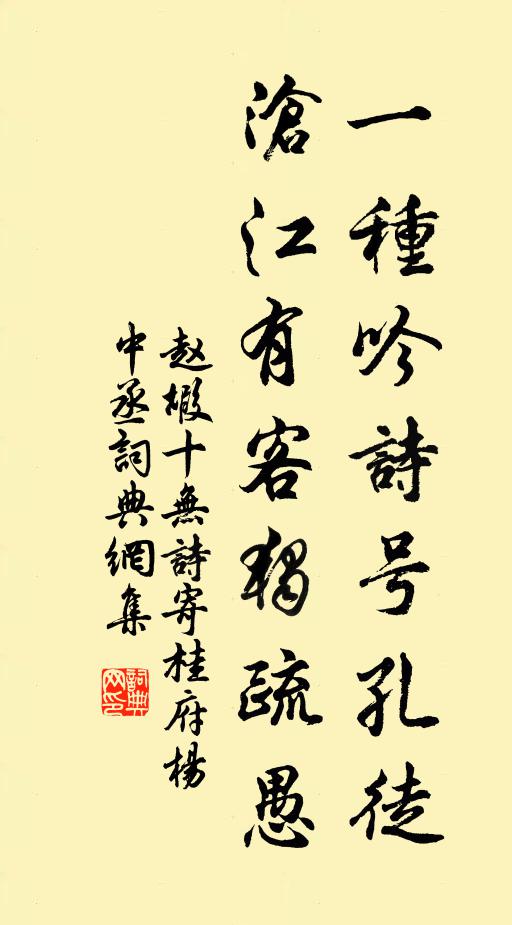 一種吟詩号孔徒
滄江有客獨疏愚
赵嘏十無詩寄桂府楊
中丞詞典網集
詞典
网印